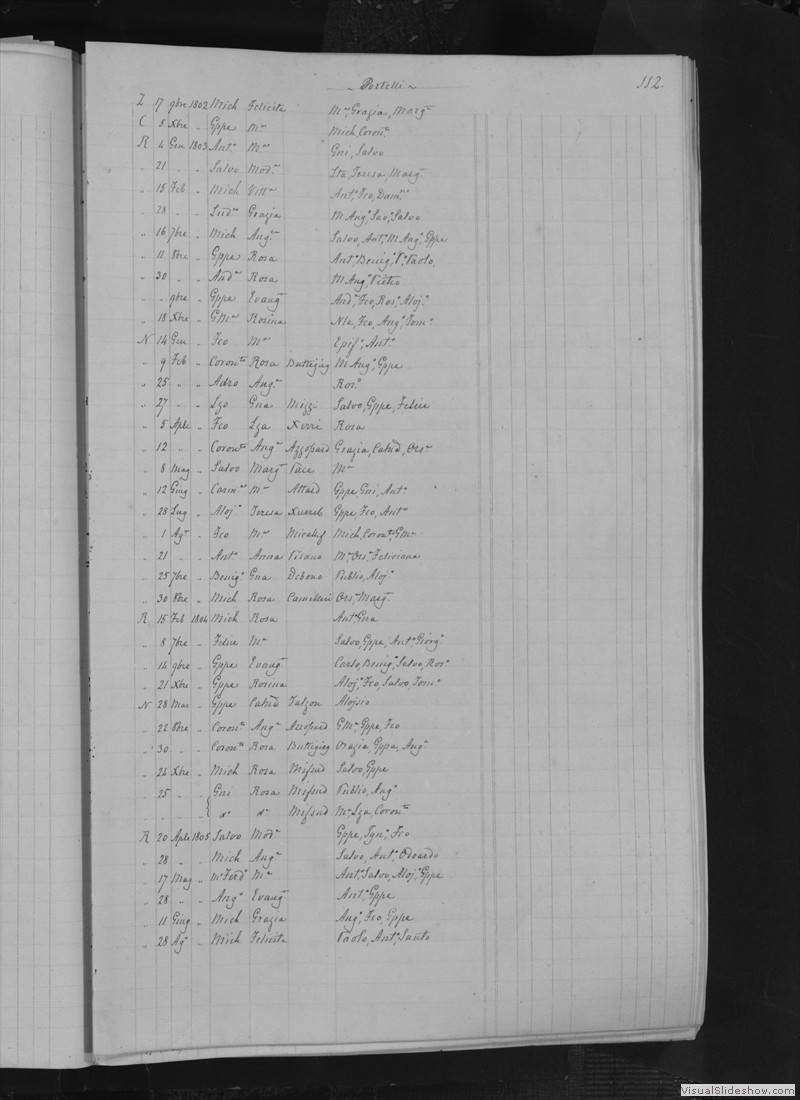 Portelli
112.
Z 17 9bre 1802 Mich Felicita Mª, Grazia, Margª
C 5 Xbre " Gppe Mª Mich, Coronª
R 4 Gen 1803 Antº Mª Gni, Salvo
" 21 " " Salvo Modª Sta, Teresa, Margª
" 15 Feb " Mich Vittª Antº, Fco, Damnº
" 28 " " Grazia M Angº, Sav, Salvo
" 16 7bre " Mich Angª Salvo, Antº, M Angº, Gppe
" 11 8bre " Gppe Rosa Antº, Benigº, Vº, Paolo,
" 30 " " Andª Rosa M Angº, Pietro
" " 9bre " Gppe Evangª Andª, Fco, Rosº, Alojº
" 18 Xbre " GMª Rosina Nla, Fco, Angº, Tomº
N 14 Gen " Fco Mª Epifº, Antº
" 9 Feb " Coronto Rosa Buttigieg M Angº, Gppe
" 25 " " Adeo Angª Rosº
" 27 " " Lzo Gna Mizzi Salvo, Gppe, Felice
" 5 Aple " Fco Lza Xerri Rosa
" 12 " " Coronto Angª Azzopard Grazia, Catnª, Orsª
" 8 Mag " Salvo Margª Pace Mª
" 12 Giug " Carmº Mª Attard Gppe Gni, Antº
" 28 Lug " Alojº Teresa Xuereb Gppe, Fco, Antº
" 1 Agº " Fco Mª Micallef Mich, Coronto, GMª
" 21 " " Antº Anna Pisano Mª, Orsº, Feliciana
" 25 7bre " Benigº Gna Debono Publio, Alojº
" 30 8bre " Mich Rosa Camilleri Orsª, Margª
R 15 Feb 1804 Mich Rosa Antº, Gna
" 8 7bre " Felice Mª Salvo, Gppe, Antº, Giorgº
" 14 9bre " Gppe Evangª Carlo, Benigº, Salvo, Rosº
" 21 Xbre " Gppe Rosina Alojº, Fco, Salvo, Tomº
N 28 Mar " Gppe Catnª Falzon Aloisio
" 22 8bre " Coronto Angª Azzopard GMª, Gppe, Fco
" 30 " " Coronto Rosa Buttigieg Orazia, Gppa, Angª
" 24 Xbre " Mich Rosa Mifsud Salvo, Gppe
" 25 " " Gni Rosa Mifsud Publio, Angº
" " " " dº dº Mifsud Mª Lza, Coronto
R 20 Aple 1805 Salvo Modª Gppe, Ignº, Fco
" 28 " " Mich Angª Salvo, Antº, Odoardo
" 17 Mag " Ferdº Mª Antº, Salvo, Alojº, Gppe
" 28 " " Angº Evangª Antº, Gppe
" 11 Giug " Mich Grazia Angº, Fco, Gppe
" 28 Agº " Mich Felicita Paolo, Antº, Santo
VisualSlideshow.com